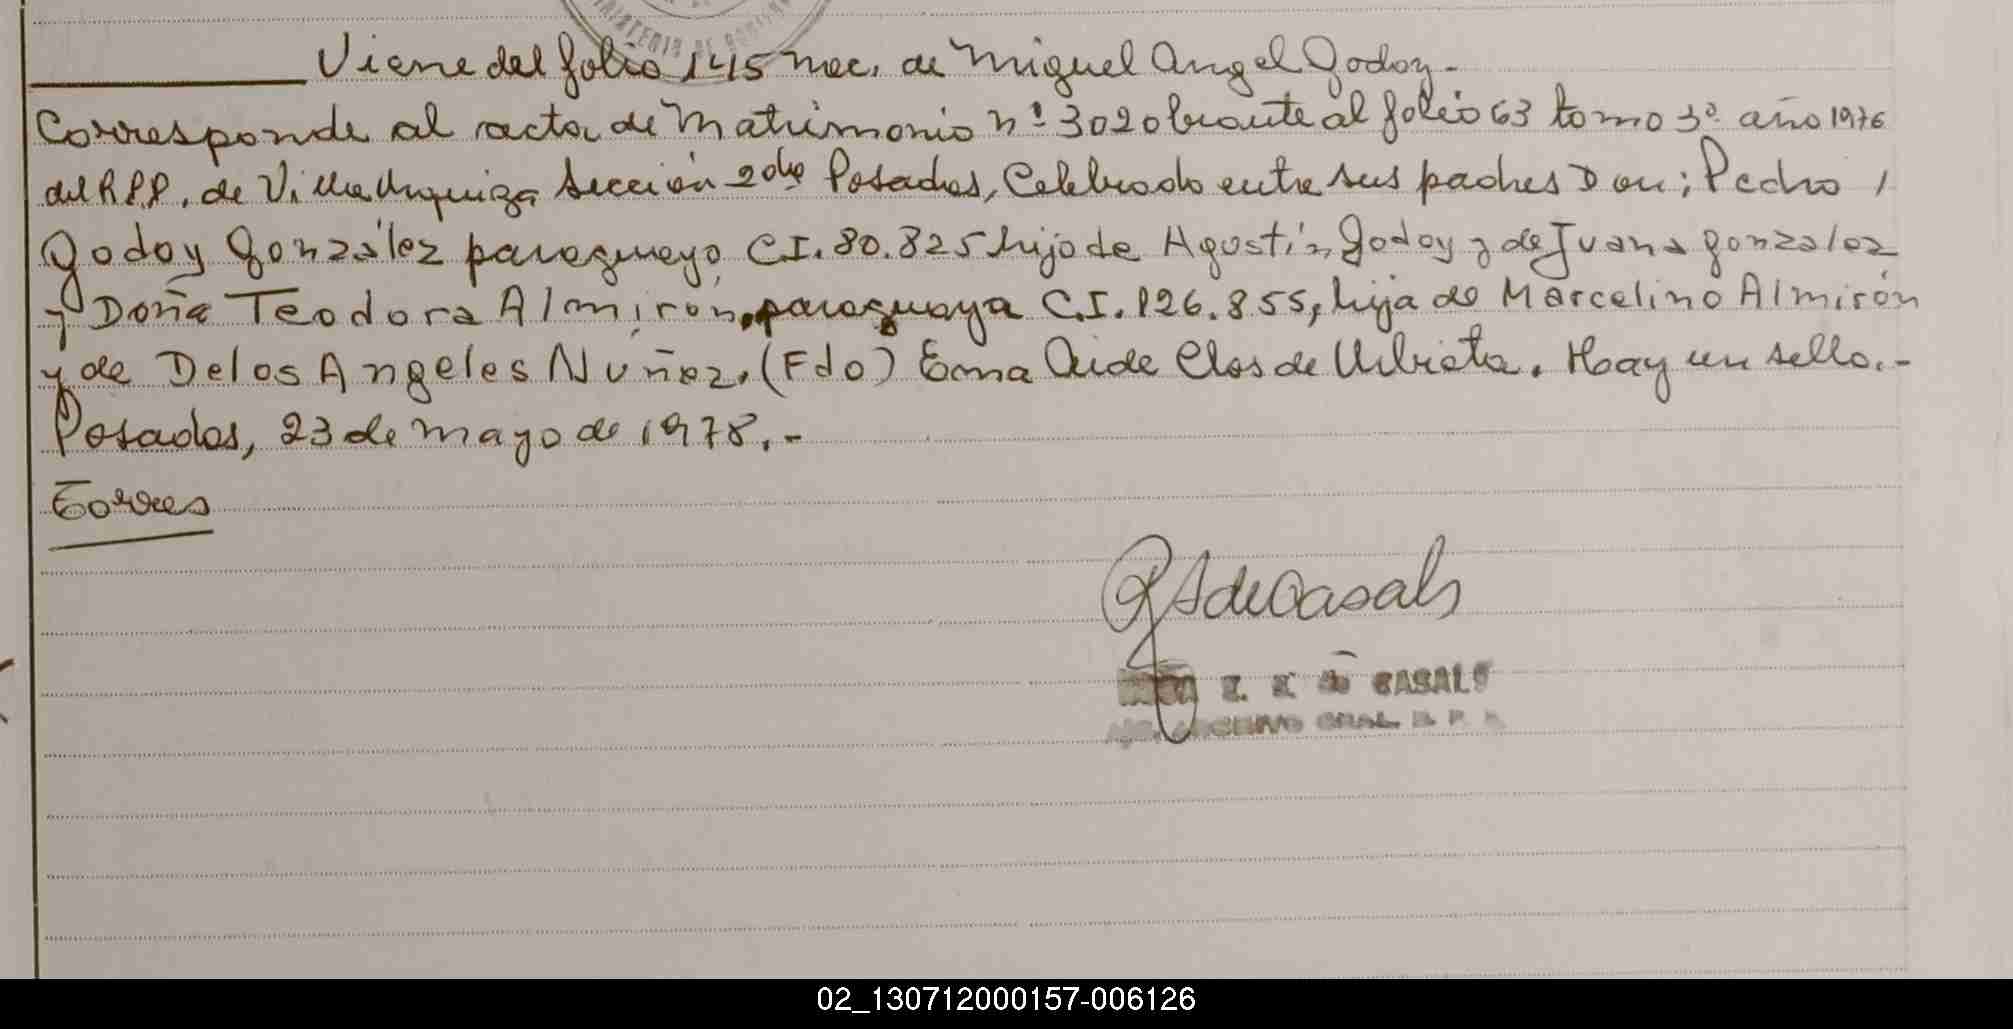 Viene del folio 145 nac. de Miguel Angel Godoy.-
Corresponde al acta de Matrimonio nº 302 obrante al folio 63 tomo 3º año 1976
del R.P.P. de Villa Urquiza Sección 2da Posadas, Celebrado entre sus padres Don; Pedro
Godoy González paraguayo, CI. 80.825 hijo de Agustín Godoy y de Juana Gonzalez
y Doña Teodora Almirón, paraguaya C.I. 126.855, hija de Marcelino Almirón
y de Delos Angeles Nuñez. (Fdo) Ema Aide Clos de Urbieta. Hay un sello.-
Posadas, 23 de Mayo de 1978.-
Torres
de Casals
CASALS
GRAL. R. P.
02_130712000157-006126